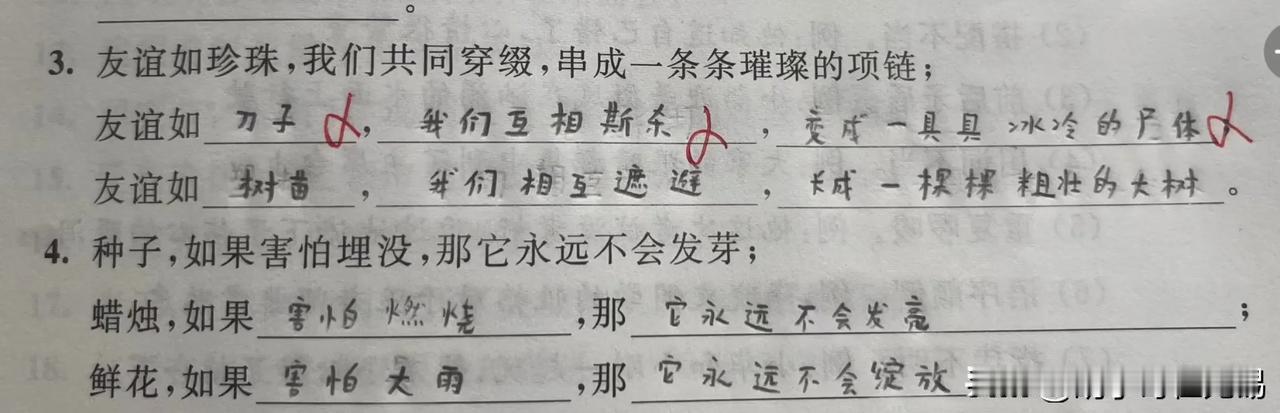 。
3. 友谊如珍珠,我们共同穿缀,串成一条条璀璨的项链;
友谊如 刀子 , 我们互相斯杀 , 变成一具具冰冷的尸体
友谊如 树苗 , 我们相互遮避 , 长成一棵棵粗壮的大树 。
4. 种子,如果害怕埋没,那它永远不会发芽;
蜡烛,如果 害怕燃烧 ,那 它永远不会发亮 ;
鲜花,如果 害怕大雨 ,那 它永远不会绽放